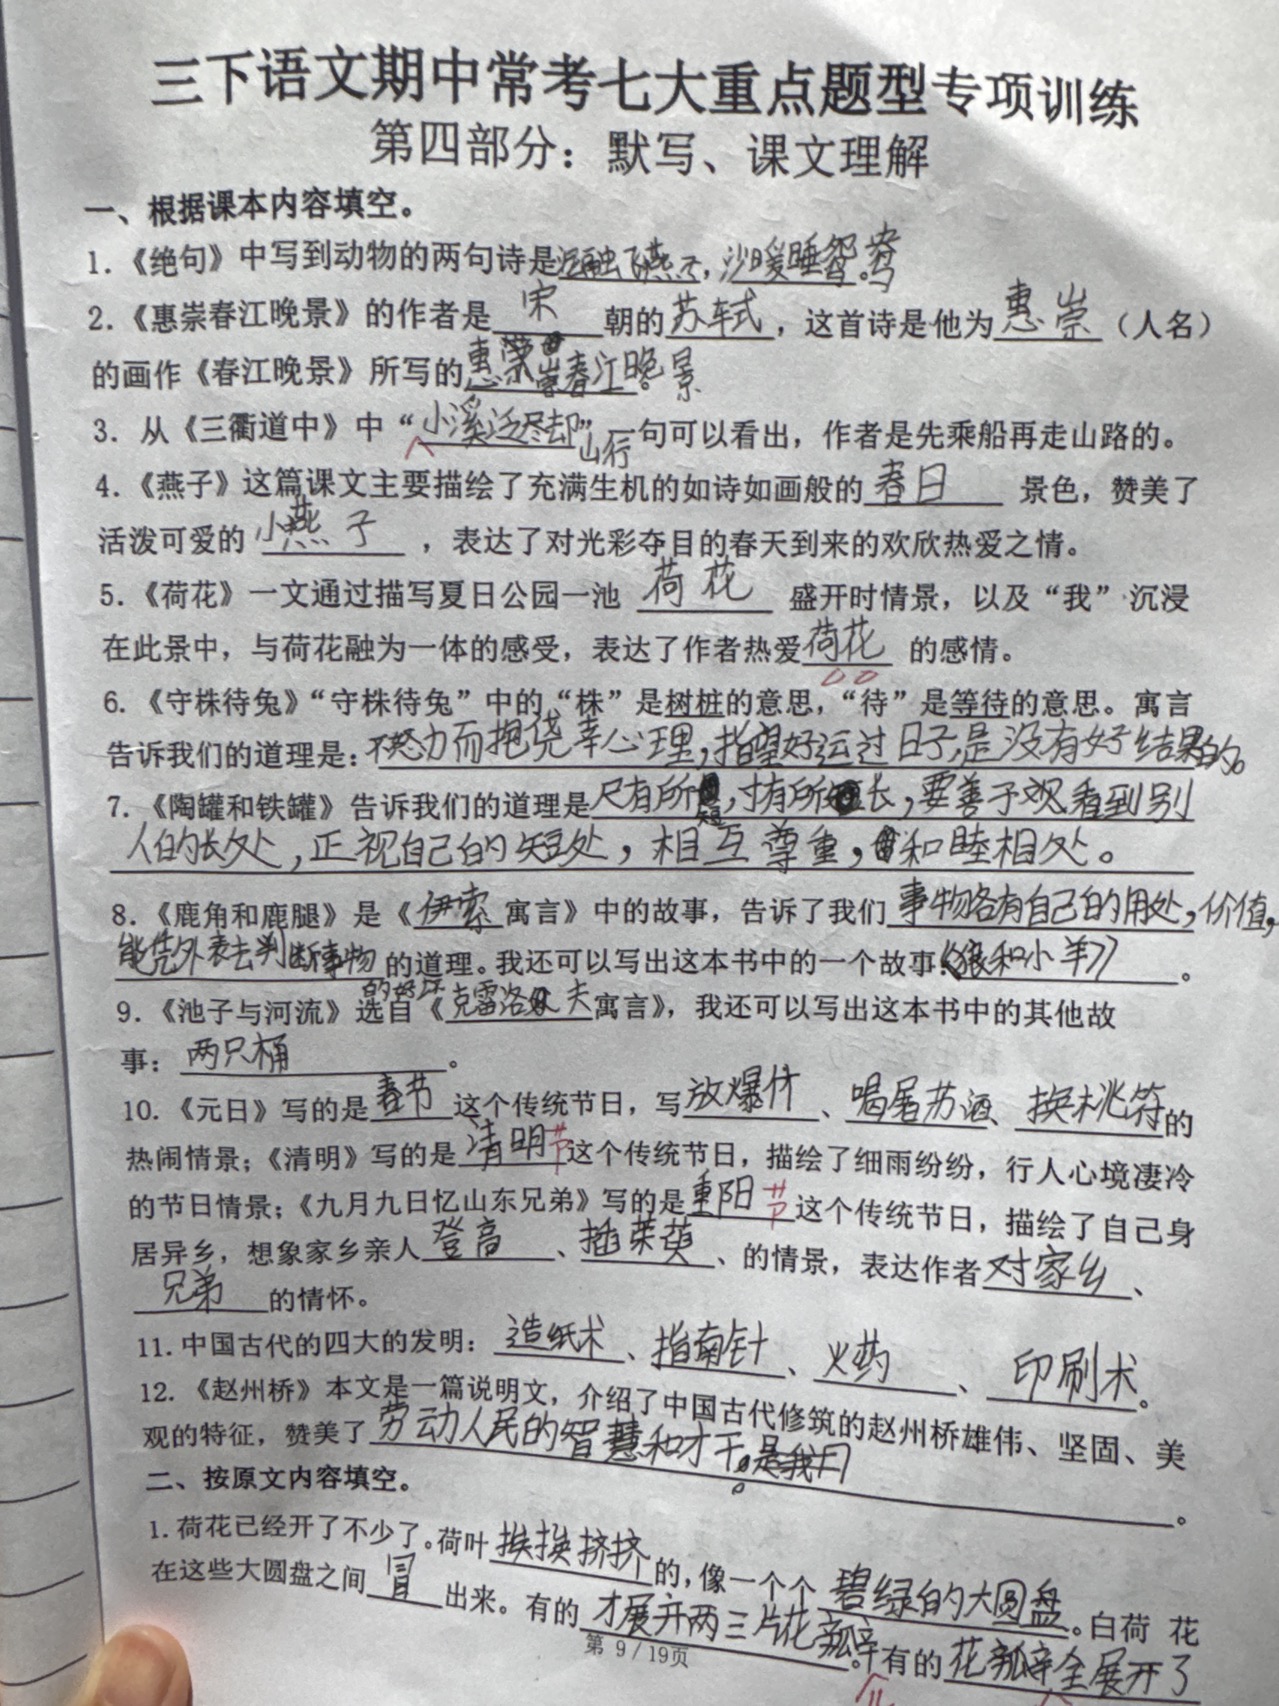 三下语文期中常考七大重点题型专项训练
第四部分：默写、课文理解
一、根据课本内容填空。
1.《绝句》中写到动物的两句诗是泥融飞燕子，沙暖睡鸳鸯。
2.《惠崇春江晚景》的作者是宋朝的苏轼，这首诗是他为惠崇（人名）
的画作《春江晚景》所写的惠崇春江晚景。
3. 从《三衢道中》中“小溪泛尽却山行”一句可以看出，作者是先乘船再走山路的。
4.《燕子》这篇课文主要描绘了充满生机的如诗如画般的春日景色，赞美了
活泼可爱的小燕子，表达了对光彩夺目的春天到来的欢欣热爱之情。
5.《荷花》一文通过描写夏日公园一池荷花盛开时情景，以及“我”沉浸
在此景中，与荷花融为一体的感受，表达了作者热爱荷花的感情。
6.《守株待兔》“守株待兔”中的“株”是树桩的意思，“待”是等待的意思。寓言
告诉我们的道理是：不努力而抱侥幸心理，指望好运过日子，是没有好结果的。
7.《陶罐和铁罐》告诉我们的道理是尺有所短，寸有所长，要善于观看到别
人的长处，正视自己的短处，相互尊重，和睦相处。
8.《鹿角和鹿腿》是《伊索寓言》中的故事，告诉了我们事物各有自己的用处，价值，
能凭外表去判断事物的好坏的道理。我还可以写出这本书中的一个故事：《狼和小羊》。
9.《池子与河流》选自《克雷洛夫寓言》，我还可以写出这本书中的其他故
事：两只桶。
10.《元日》写的是春节这个传统节日，写放爆竹、喝屠苏酒、换桃符的
热闹情景；《清明》写的是清明节这个传统节日，描绘了细雨纷纷，行人心境凄冷
的节日情景；《九月九日忆山东兄弟》写的是重阳节这个传统节日，描绘了自己身
居异乡，想象家乡亲人登高、插茱萸、的情景，表达作者对家乡、
兄弟的情怀。
11.中国古代的四大的发明：造纸术、指南针、火药、印刷术。
12.《赵州桥》本文是一篇说明文，介绍了中国古代修筑的赵州桥雄伟、坚固、美
观的特征，赞美了劳动人民的智慧和才干。是我们。
二、按原文内容填空。
1.荷花已经开了不少了。荷叶挨挨挤挤的，像一个个碧绿的大圆盘。白荷 花
在这些大圆盘之间冒出来。有的才展开两三片花瓣。有的花瓣全展开了
第 9 / 19页